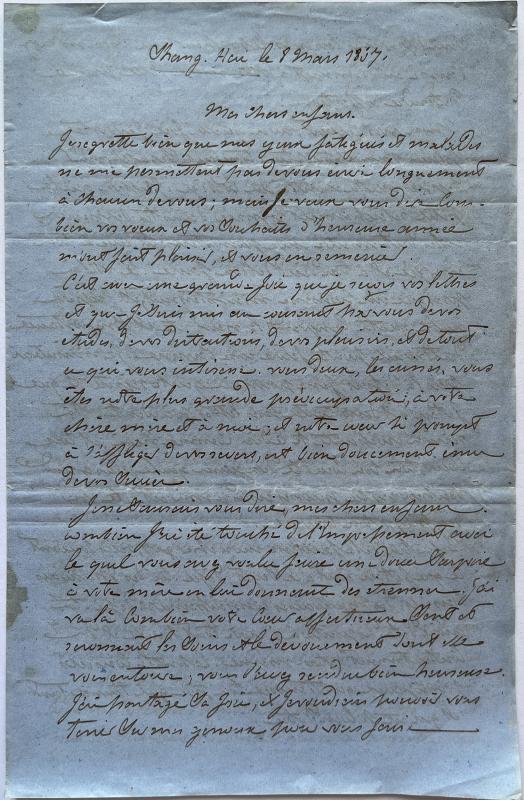 Shang. Haï le 8 Mars 1857.
Mes chers enfans.
Je regrette bien que mes yeux fatigués et malades
ne me permettent pas de vous écrire longuement
à chacun de vous; mais je veux vous dire com-
bien vos voeux et vos souhaits d'heureuse année
m'ont fait plaisir, et vous en remercier.
C'est une grande Joie que je reçois vos lettres
et que je suis mis au courant par vous de vos
études, de vos distractions, de vos plaisirs, et de tout
ce qui vous intéresse. vous deux, les aînés, vous
êtes notre plus grande préoccupation, à votre
chère mère et à moi; et notre coeur si prompt
à s'affliger de vos revers, est bien doucement ému
de vos Succès.
Je ne saurais vous dire, mes chers enfans
combien J'ai été touché de l'Empressement avec
le quel vous avez voulu faire une douce Surprise
à votre mère en lui donnant des étrennes; J'ai
vu là combien votre Coeur affectueux Sent et
reconnaît les Soins et le dévouement dont elle
vous entoure; vous l'avez rendue bien heureuse.
J'ai partagé Sa Joie, et Je voudrais pouvoir vous
tenir Sur mes genoux pour vous